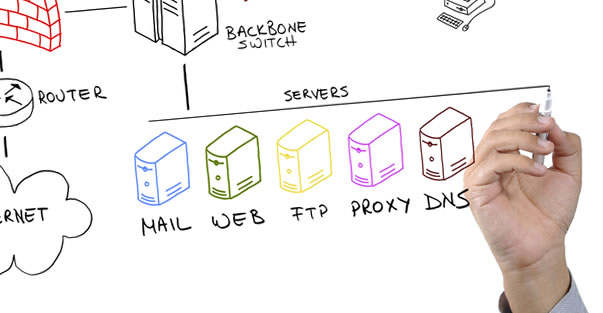 BACKBONE
SWITCH
ROUTER
SERVERS
ERNET
MAIL WEB FTP PROXY DNS